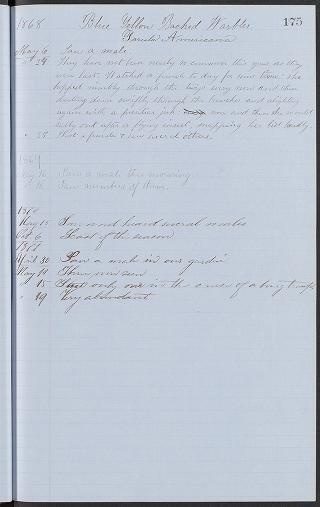 1868 Blue Yellow Backed Warbler 175
Parula Americana
May 6 Saw a male
" 24 They have not been nearly so common this year as they
were last. Watched a female to day for some time: she
hopped nimbly through the twigs every now and then
darting down swiftly through the branches and alighting
again with a peculiar jerk now and then she would
dart out after a flying insect, snapping her bill loudly
" 28 Shot a female & saw several others.
1869
May 16 Saw a male this morning.
" 18 Saw numbers of them.
1870
May 15 Saw and heard several males
Oct 6 Last of the season
1871
April 30 Saw a male in our garden
May 14 Three were seen
" 15 only one in the course of a long tramp
" 19 Very abundant